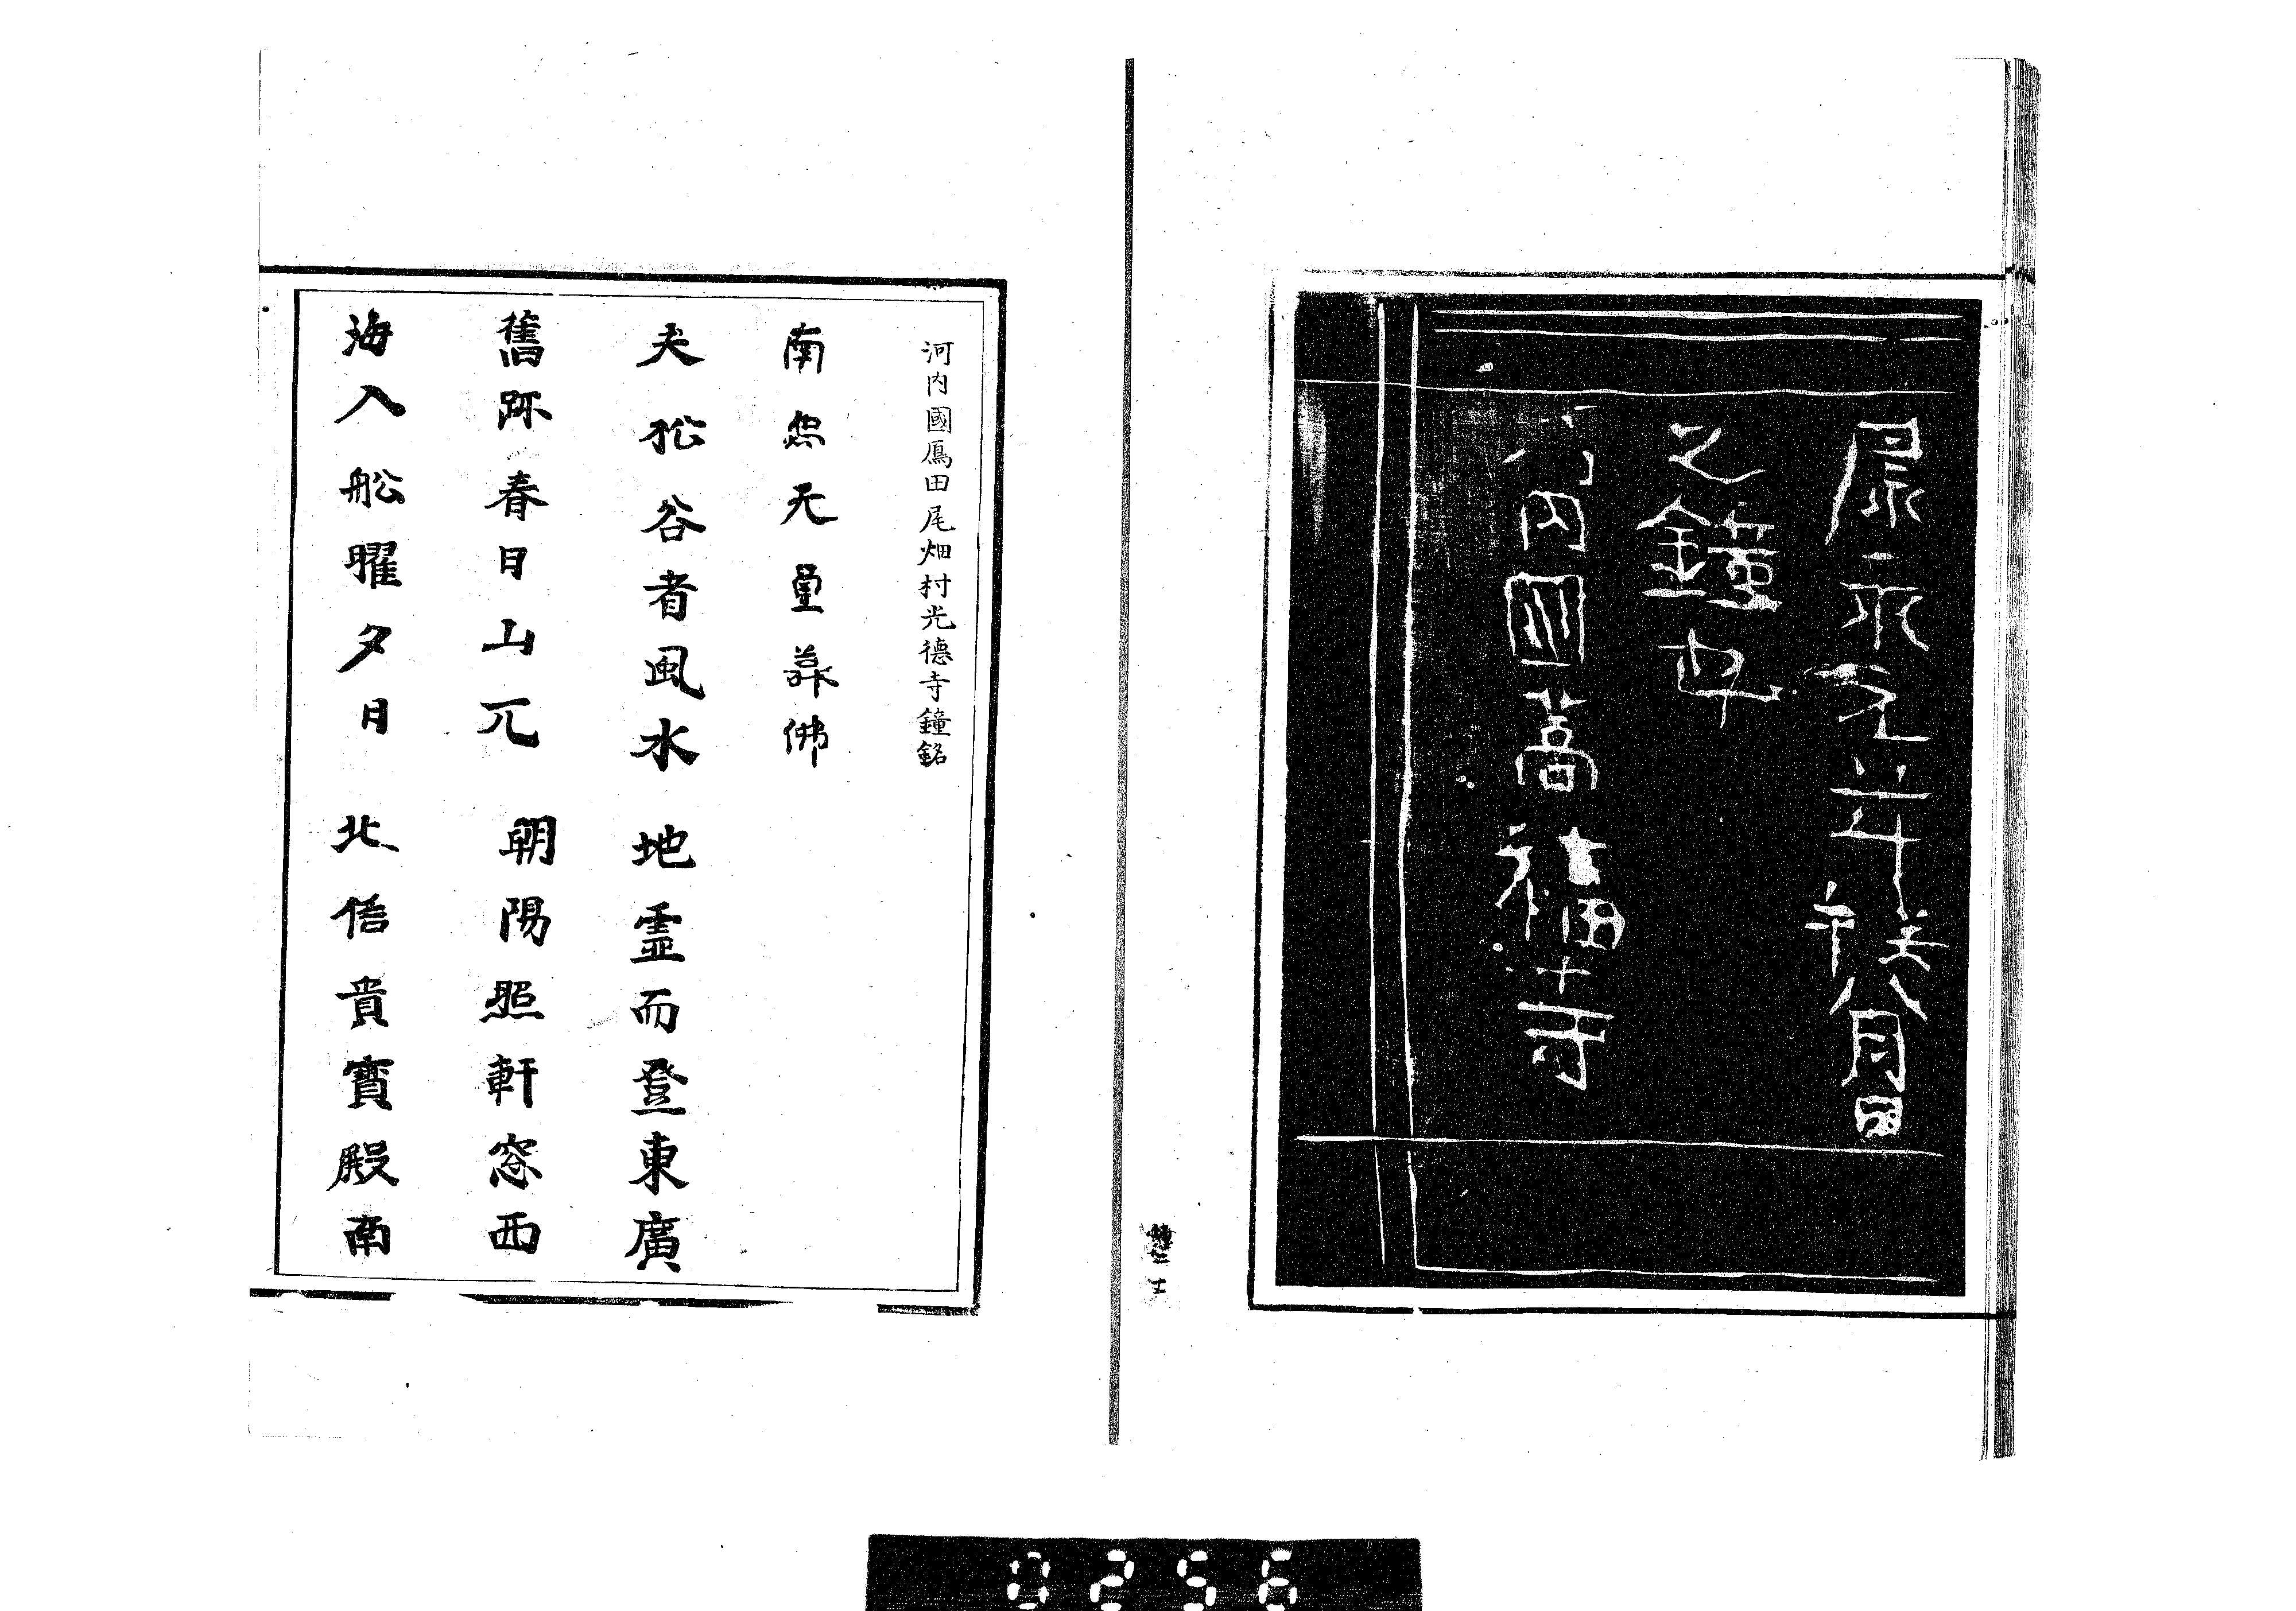 康永元年八月日
之鐘也
河内國高福寺
河内國鴈田尾畑村光德寺鐘銘
南無无量壽佛
夫松谷者風水地霊而登東廣
舊跡春日山兀朝陽照軒窓西
海入舩曜夕日北信貴寳殿南
0256